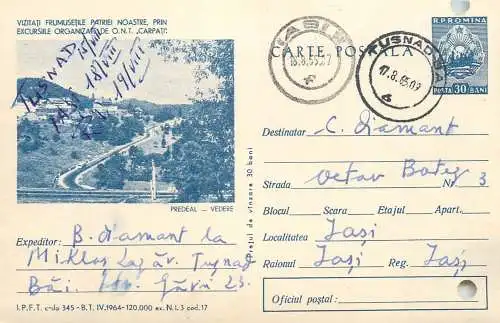 VIZITAȚI FRUMUSEȚILE PATRIEI NOASTRE, PRIN
EXCURSIILE ORGANIZATE DE O.N.T. „CARPAȚI”.
TUSNAD 15/VIII
IAȘI 18/VIII
19/VIII
PREDEAL — VEDERE
Expeditor: B. Diamant la
Miklos Lazăr. Tușnad
Băi. Str. Gării 23.
I.P.F.T. c-da 345 - B.T. IV.1964 - 120.000 ex. N.I. 3 cod. 17
Prețul de vînzare 30 bani
CARTE POȘTALĂ
IAȘI
18.8.65.07
TUSNAD-BAI
17.8.65.09
R.P.ROMINA
POSTA 30 BANI
Destinatar C. Diamant
Strada Octav Botez Nr. 3
Blocul Scara Etajul Apart.
Localitatea Iași
Raionul Iași Reg. Iași
Oficiul poștal: